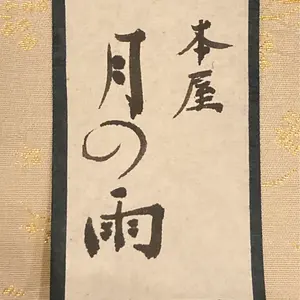 本屋
月の雨